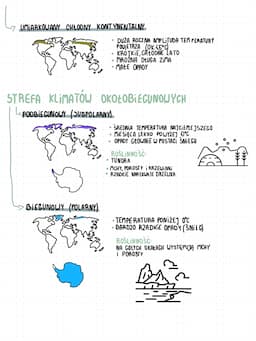 UMIARKOWANY CHŁODNY KONTYNENTALNY
• DUŻA ROCZNA AMPLITUDA TEMPERATURY
POWIETRZA
• KRÓTKIE, CHŁODNE LATO
• MROŹNA DŁUGA ZIMA
• MAŁE OPADY
STREFA KLIMATÓW OKOŁOBIEGUNOWYCH
PODBIEGUNOWY (SUBPOLARNY)
• ŚREDNIA TEMPERATURA NAJCIEPLEJSZEGO
• MIESIĄCA LEKKO POWYŻEJ 0°C
• OPADY GŁÓWNIE W POSTACI ŚNIEGU
ROŚLINNOŚĆ:
• TUNDRA
• MCHY, POROSTY I KRZEWINKI
• RZADKIE KARŁOWATE DRZEWKA
BIEGUNOWY (POLARNY)
• TEMPERATURA PONIŻEJ 0°C
• BARDZO RZADKIE OPADY (ŚNIEG)
ROŚLINNOŚĆ:
NA GOŁYCH SKAŁACH WYSTĘPUJĄ MCHY
I POROSTY